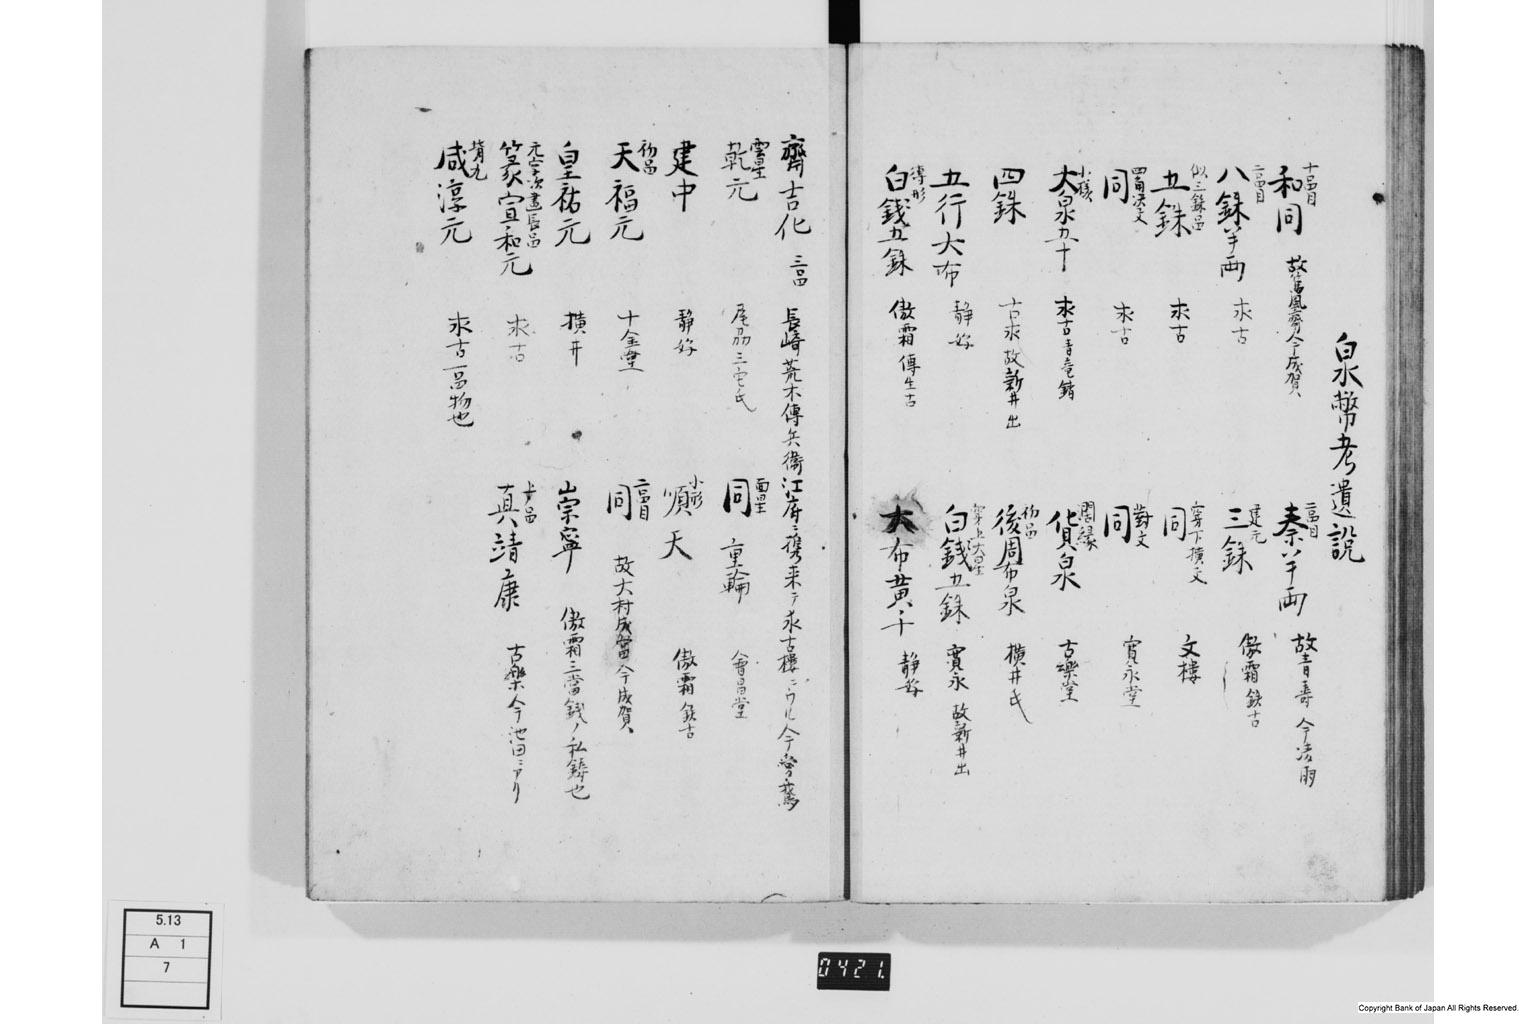 泉幣考遺説
十品目 和同 故舊風齋今成賀
二品目 秦半両 故青壽 今凌雨
二品目 八銖半両 求古
建元 三銖 傲霜 鋳古
似三銖品 五銖 求古
穿下横文 同 文樓
四角決文 同 求古
對文 同 寛永堂
小様 大泉五十 求古 青竜銷
闊縁 貨泉 古樂堂
四銖 古求 故新井出
初品 後周布泉 横井氏
五行大布 静好
穿上大星 白錢五銖 寛永 故新井出
傳形 白錢五銖 傲霜 傳生古
大布黄千 静好
齊吉化 三品 長崎荒木傳兵衛江府ニ携来テ求古樓ニウル今
雲星 乾元 尾刕三宅氏
面星 同 重輪 會昌堂
建中 静好
小形 順天 傲霜 鋳古
初品 天福元 十全堂
二品目 同 故大村成當今成賀
皇祐元 横井
崇寧 傲霜三當錢ノ私鋳也
元字次畫長品 篆宣和元 求古
上品 真靖康 古樂今池田ニアリ
背九 咸淳元 求古一品物也
5.13
A 1
7
0421.
Copyright Bank of Japan All Rights Reserved.